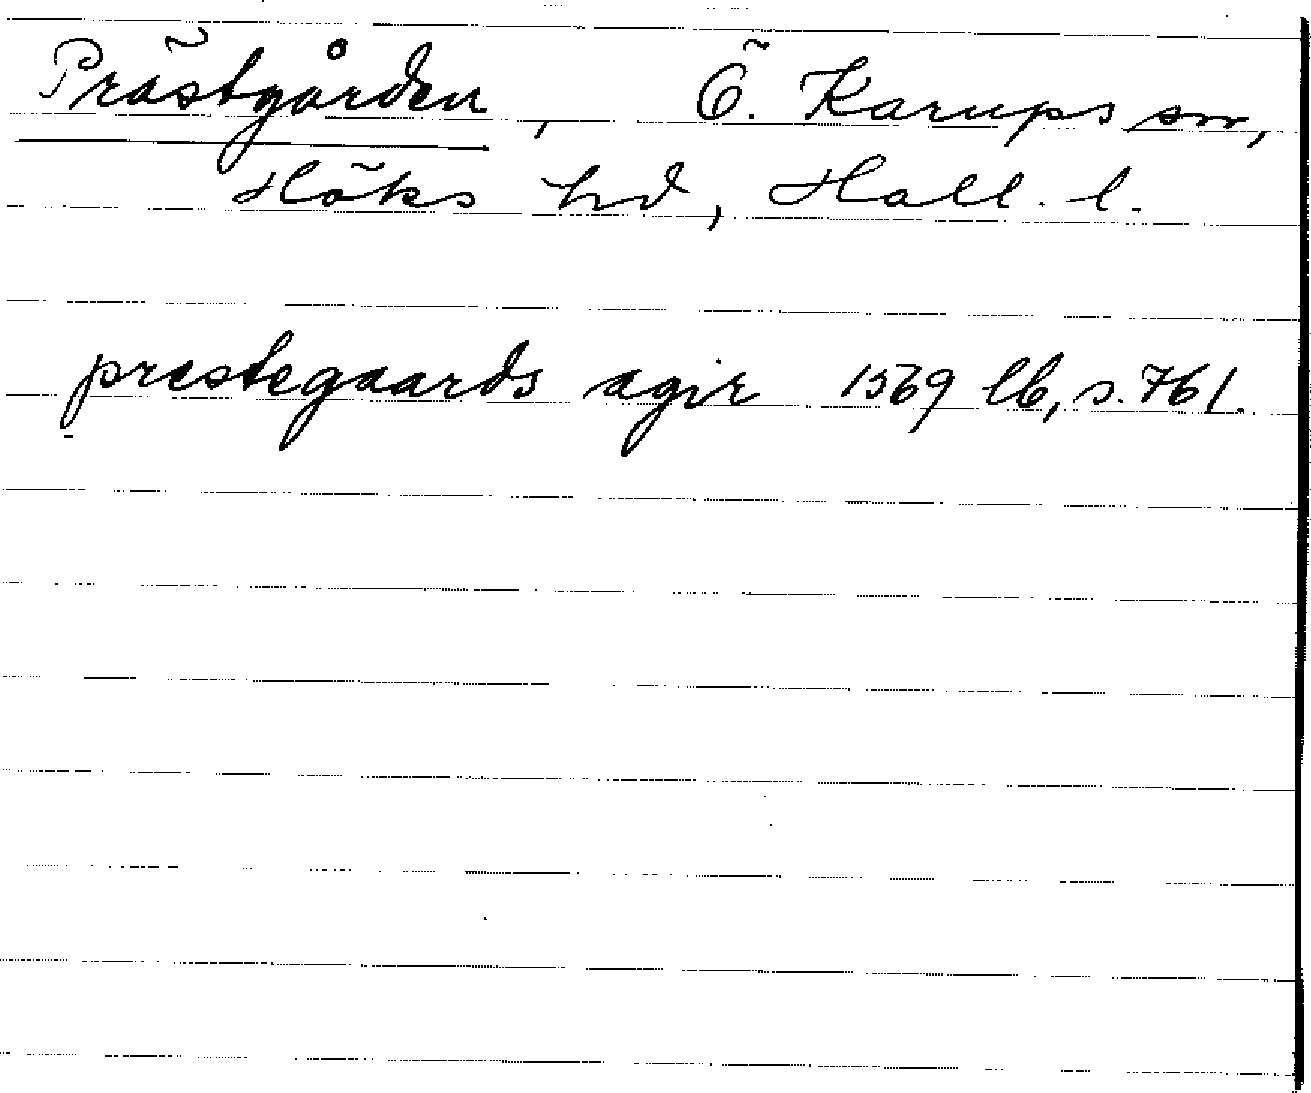 Prästgården, Ö. Karups sn,
Höks hd, Hall. l.
prestegaards agir 1569 lb, s. 761.